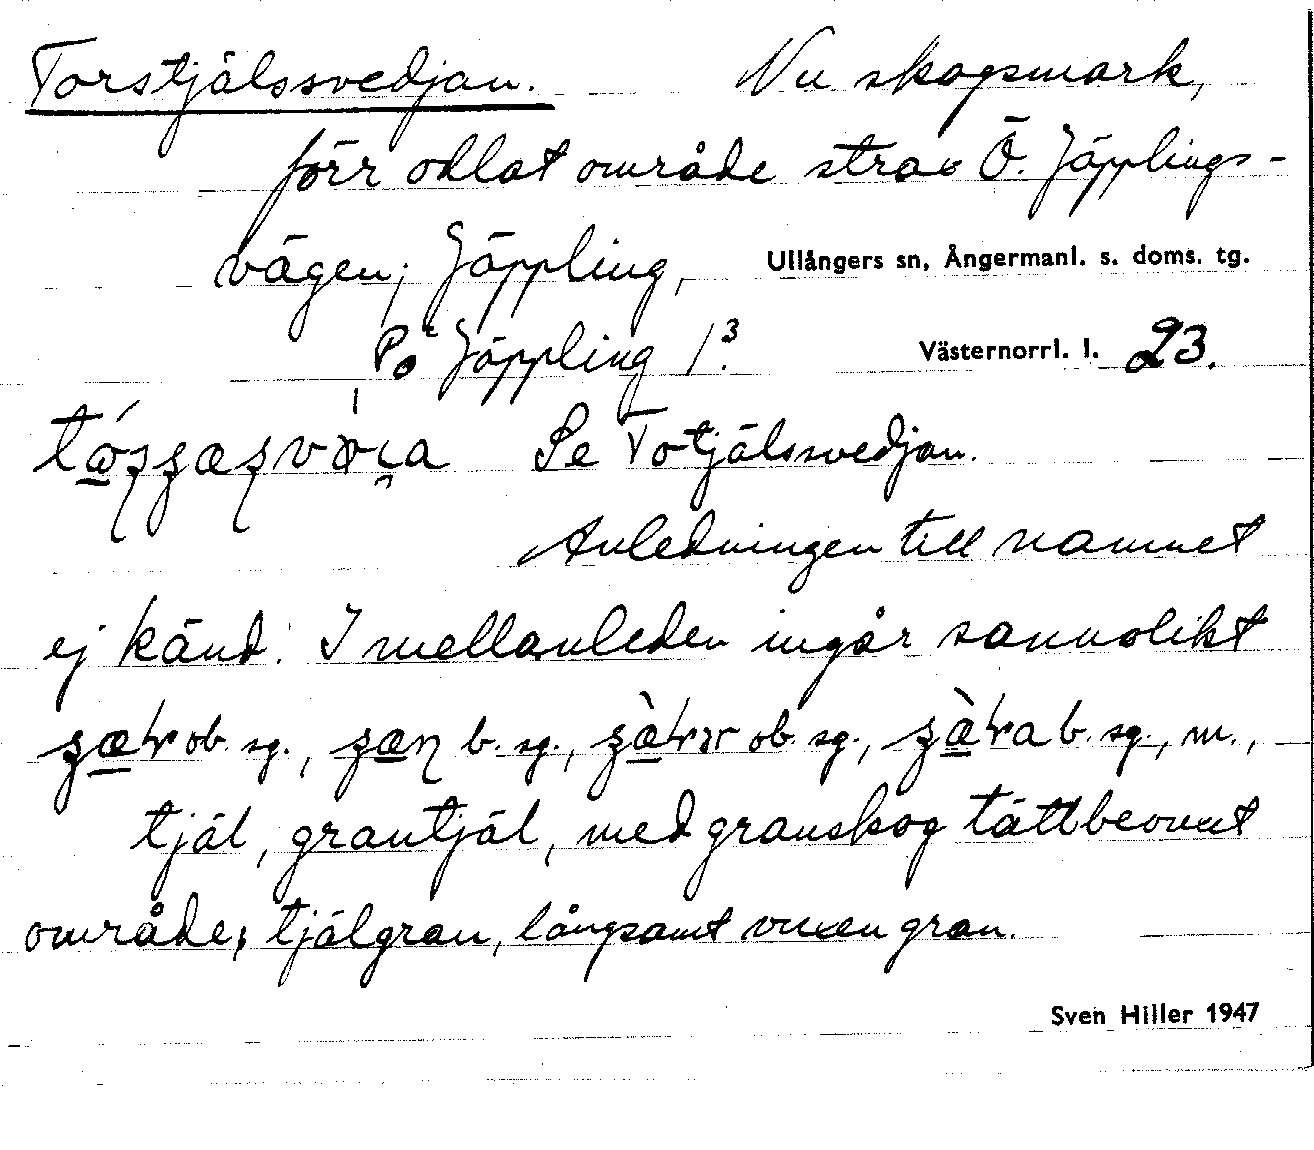 Torstjälssvedjan. Nu skogsmark,
förr odlat område strax Ö. Jäpplings-
vägen; Jäppling, Ullångers sn, Ångermanl. s. doms. tg.
På Jäppling 1³. Västernorrl. l. 23.
Se Totjälssvedjan.
Anledningen till namnet
ej känd. I mellanleden ingår sannolikt
ob. sg., b. sg., ob. sg., b. sg., m.,
tjäl, grantjäl, med granskog tättbevuxt
område; tjälgran, långsamt vuxen gran.
Sven Hiller 1947